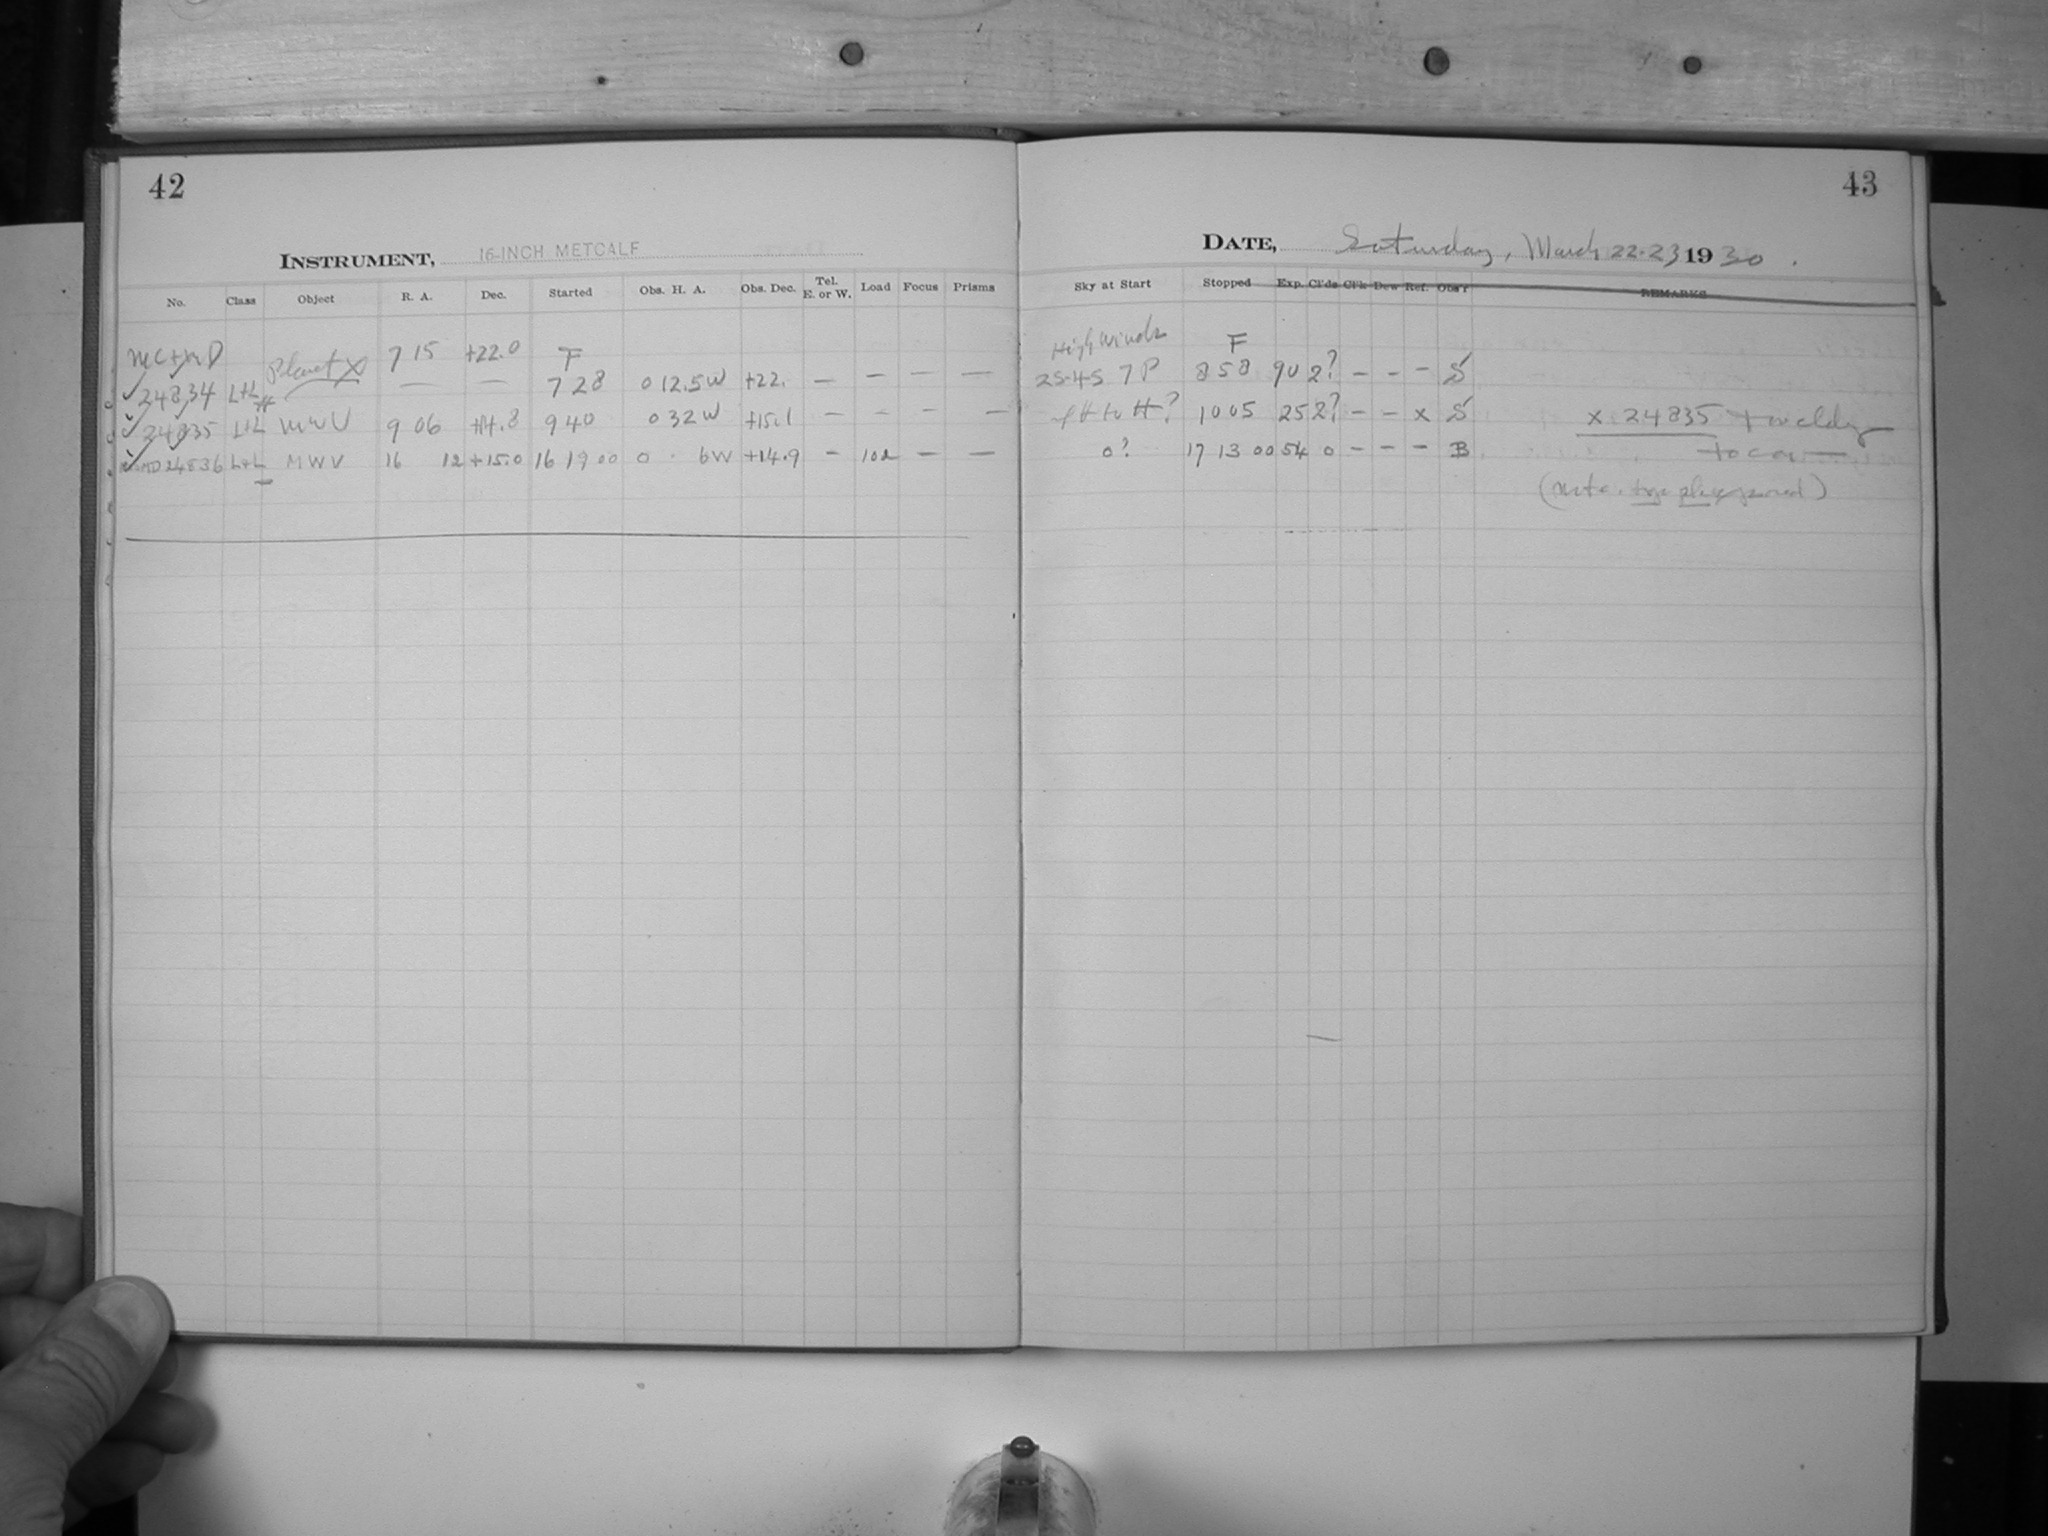 42
INSTRUMENT, 16-INCH METCALF
No. Class Object R. A. Dec. Started Obs. H. A. Obs. Dec. Tel. E. or W. Load Focus Prisms
MC+MD Planet X 7 15 +22.0 F
✓ 24834 L+L — — 7 28 0 12.5W +22. — — — —
✓ 24835 L+L MWV 9 06 +14.8 9 40 0 32W +15.1 — — — —
✓ 24836 L+L MWV 16 12 +15.0 16 19 00 0 · 6W +14.9 — 102 — —
43
DATE, Saturday, March 22-23 1930.
Sky at Start Stopped Exp. Cl'ds Cl'k Dew Ref. Obs'r REMARKS
High Winds F
25-45 7P 8 58 90 2? — — — S
to H? 10 05 25 2? — — x S x 24835
0? 17 13 00 54 0 — — — B
(note.